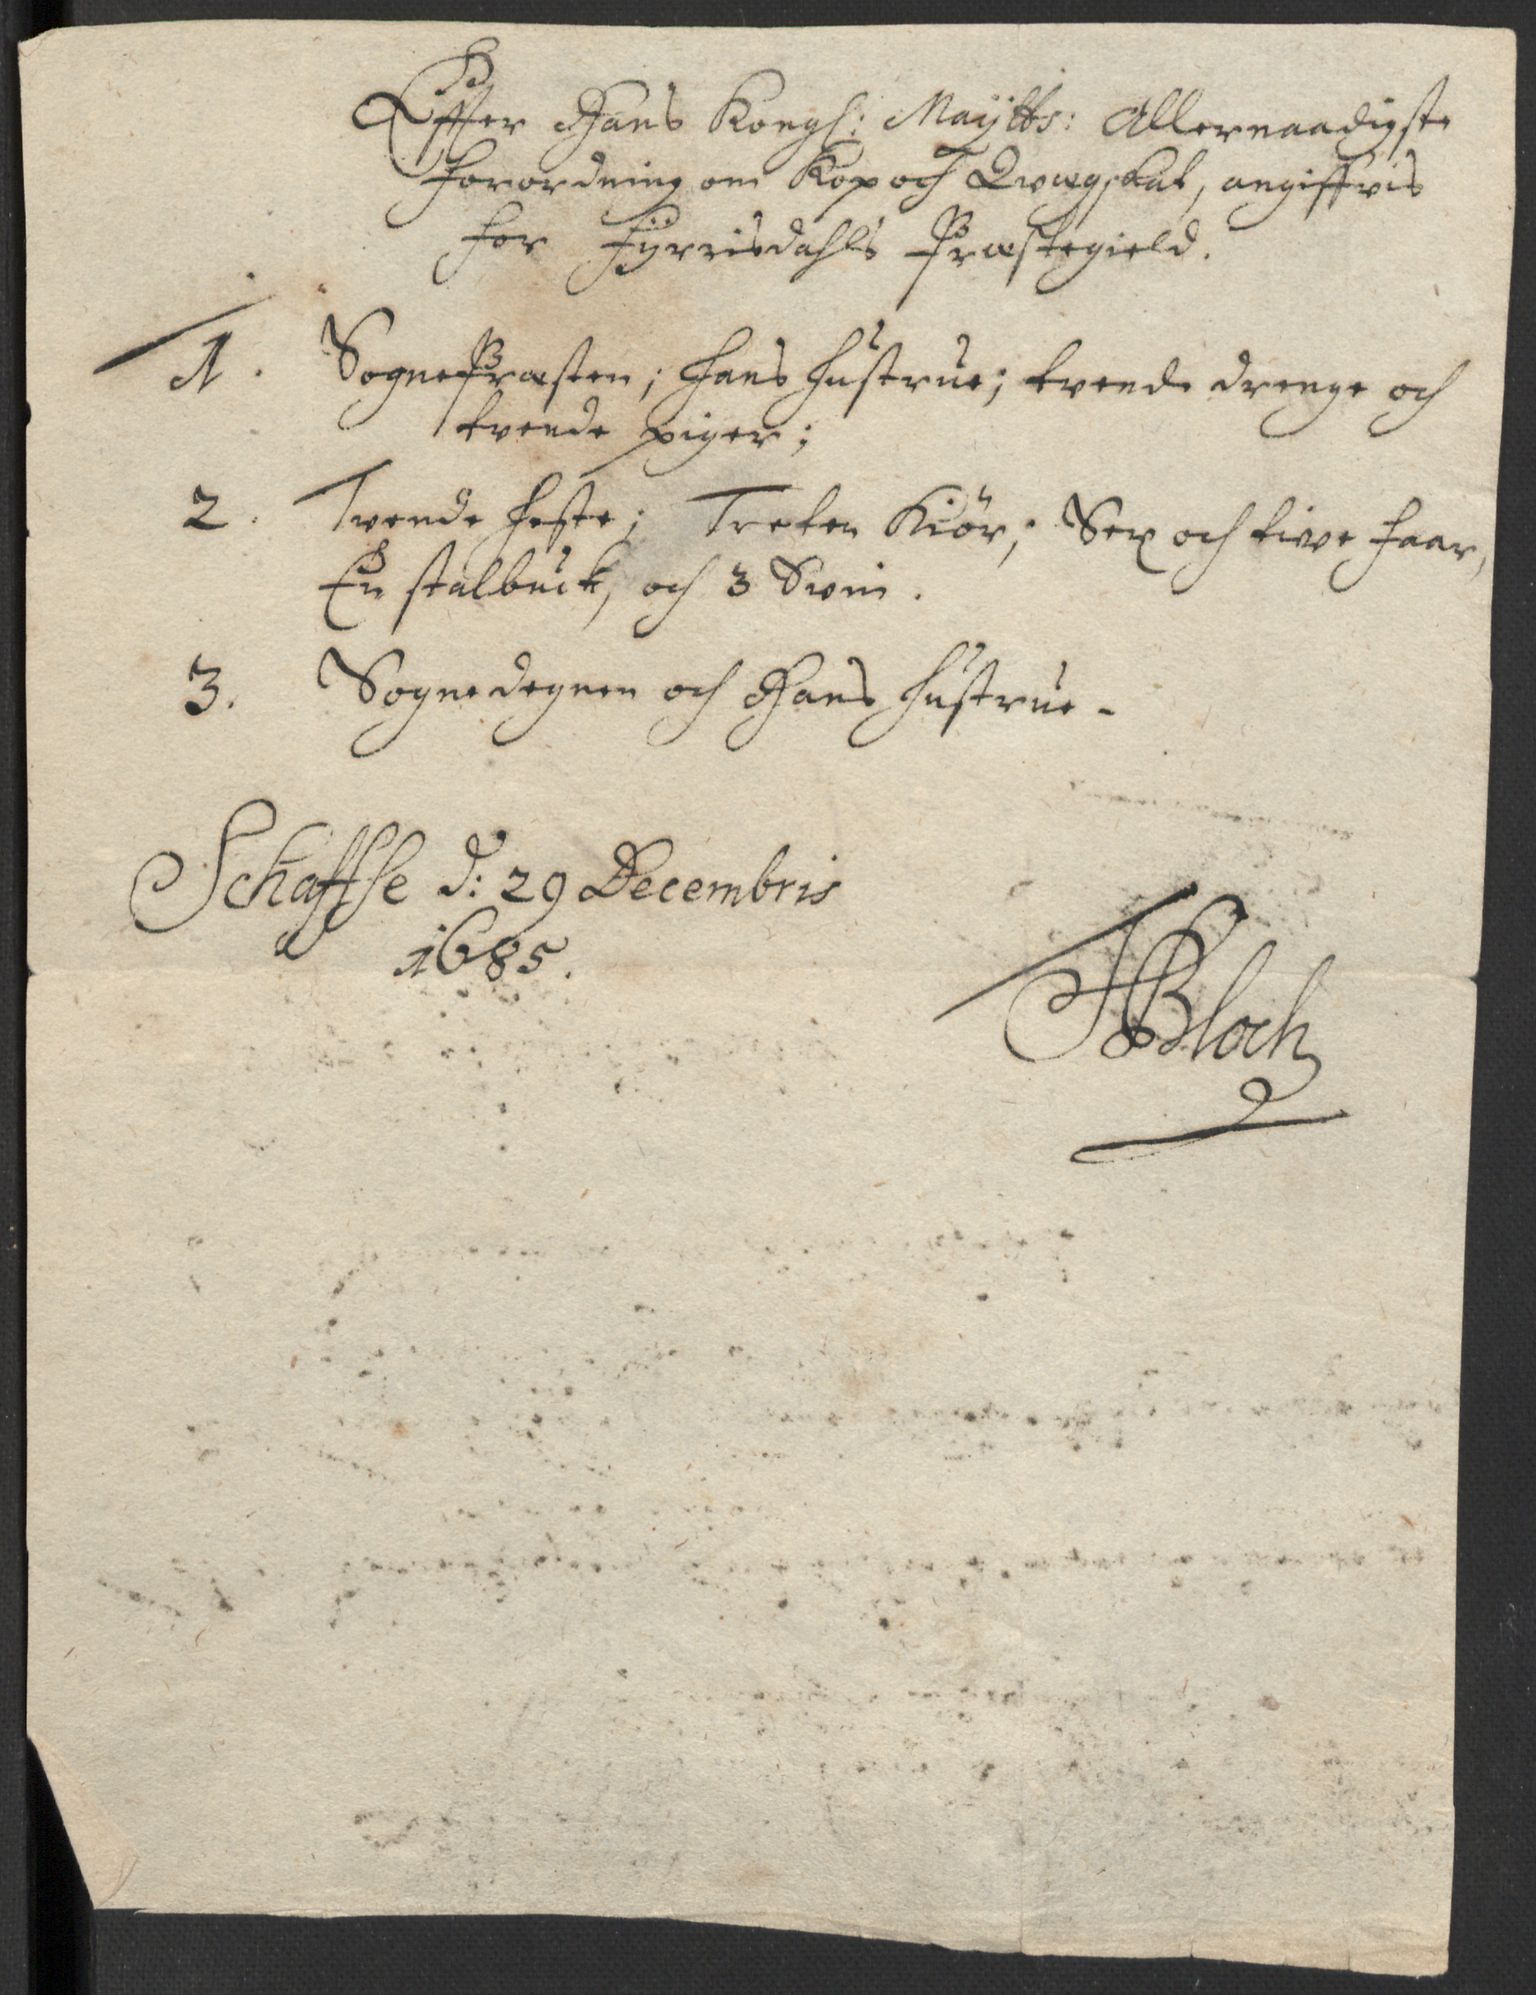 Effter Hans Kongl: Maÿtts: Allernaadigste
forordning om Kop och Qvægskat, angiffvis
for Fÿrrisdahls Præstegield.
1. SognePræsten; hans hustrue; tvende drenge och
tvende piger;
2. Tvende heste; Tretten Kiör; Sex och tive faar,
En stalbuck, och 3 Svin.
3. Sognedegnen och Hans hustrue -
Schaffse d: 29 Decembris
1685.
HBloch